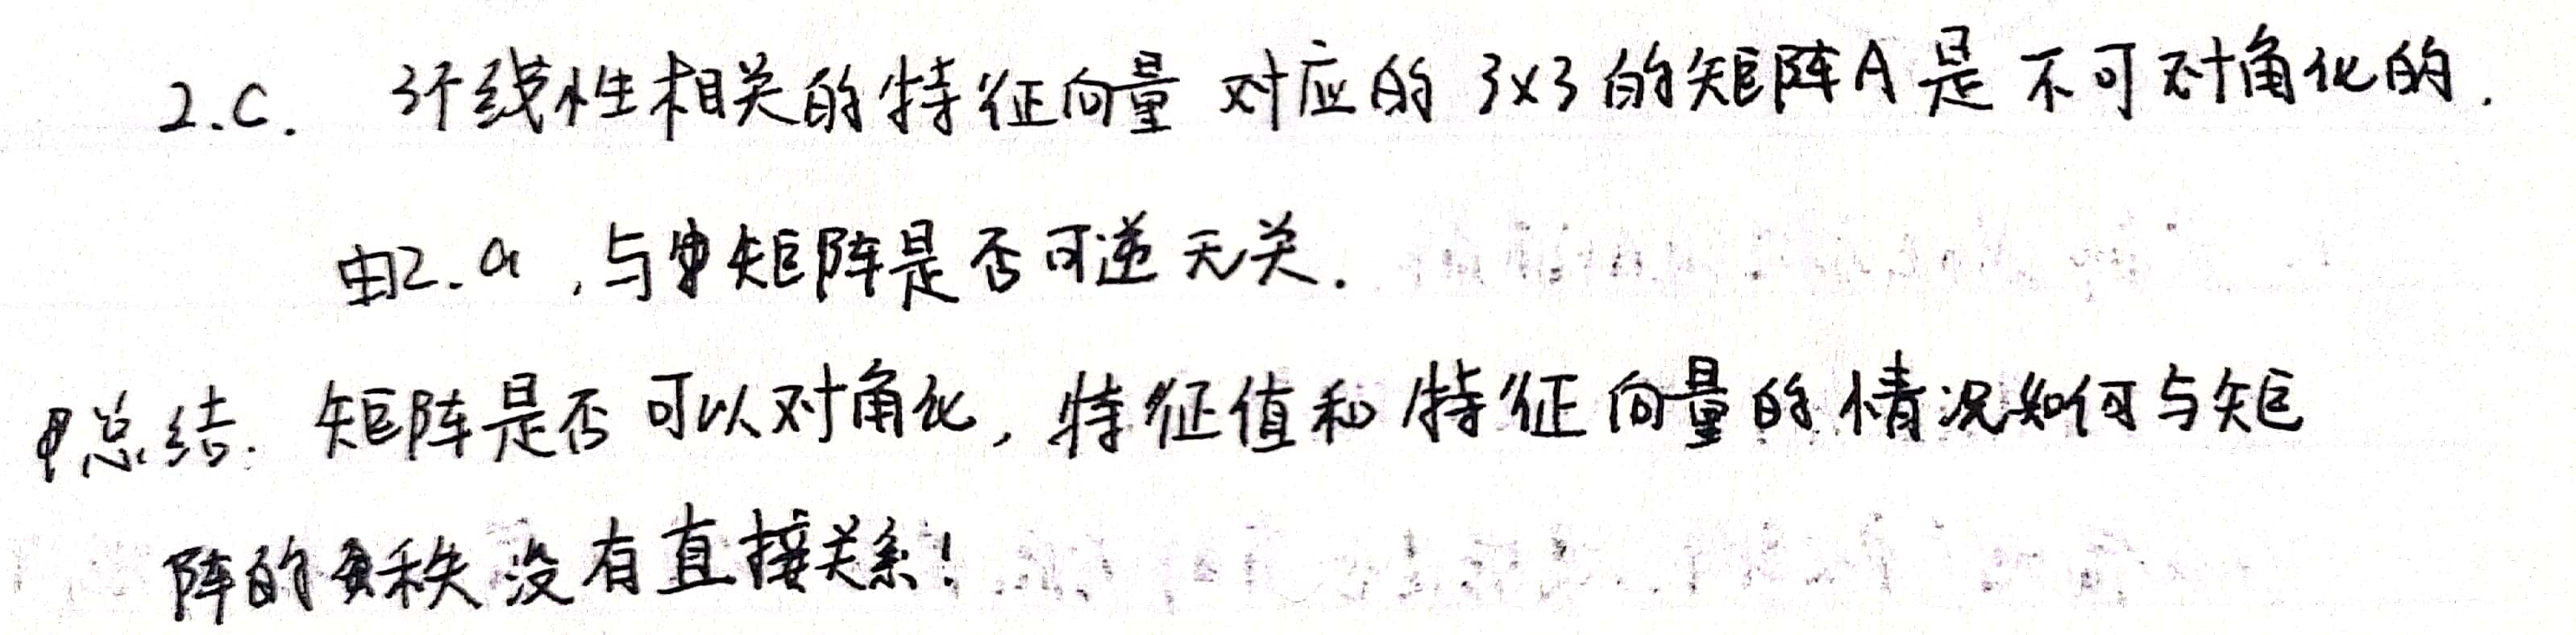 2.C. 3个线性相关的特征向量 对应的 3×3 的矩阵A是 不可对角化的.
由2.a ,与矩阵是否可逆无关.
总结. 矩阵是否可以对角化, 特征值和特征向量的情况如何与矩
阵的秩没有直接关系!